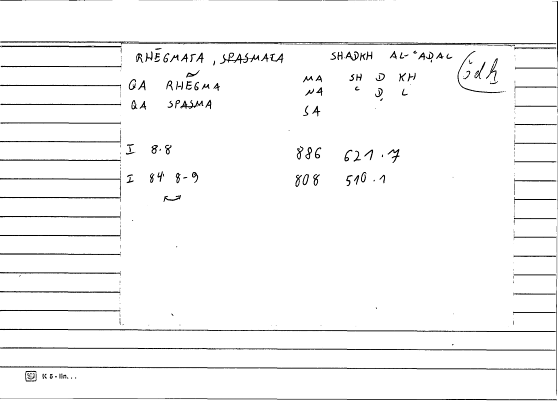 RHĒGMATA, SPASMATA SHADKH AL-ʿAḌAL
QA RHĒGMA MA SH D KH
QA SPASMA NA ʿ Ḍ L
SA
I 8.8 886 621.7
I 84 8-9 808 510.1